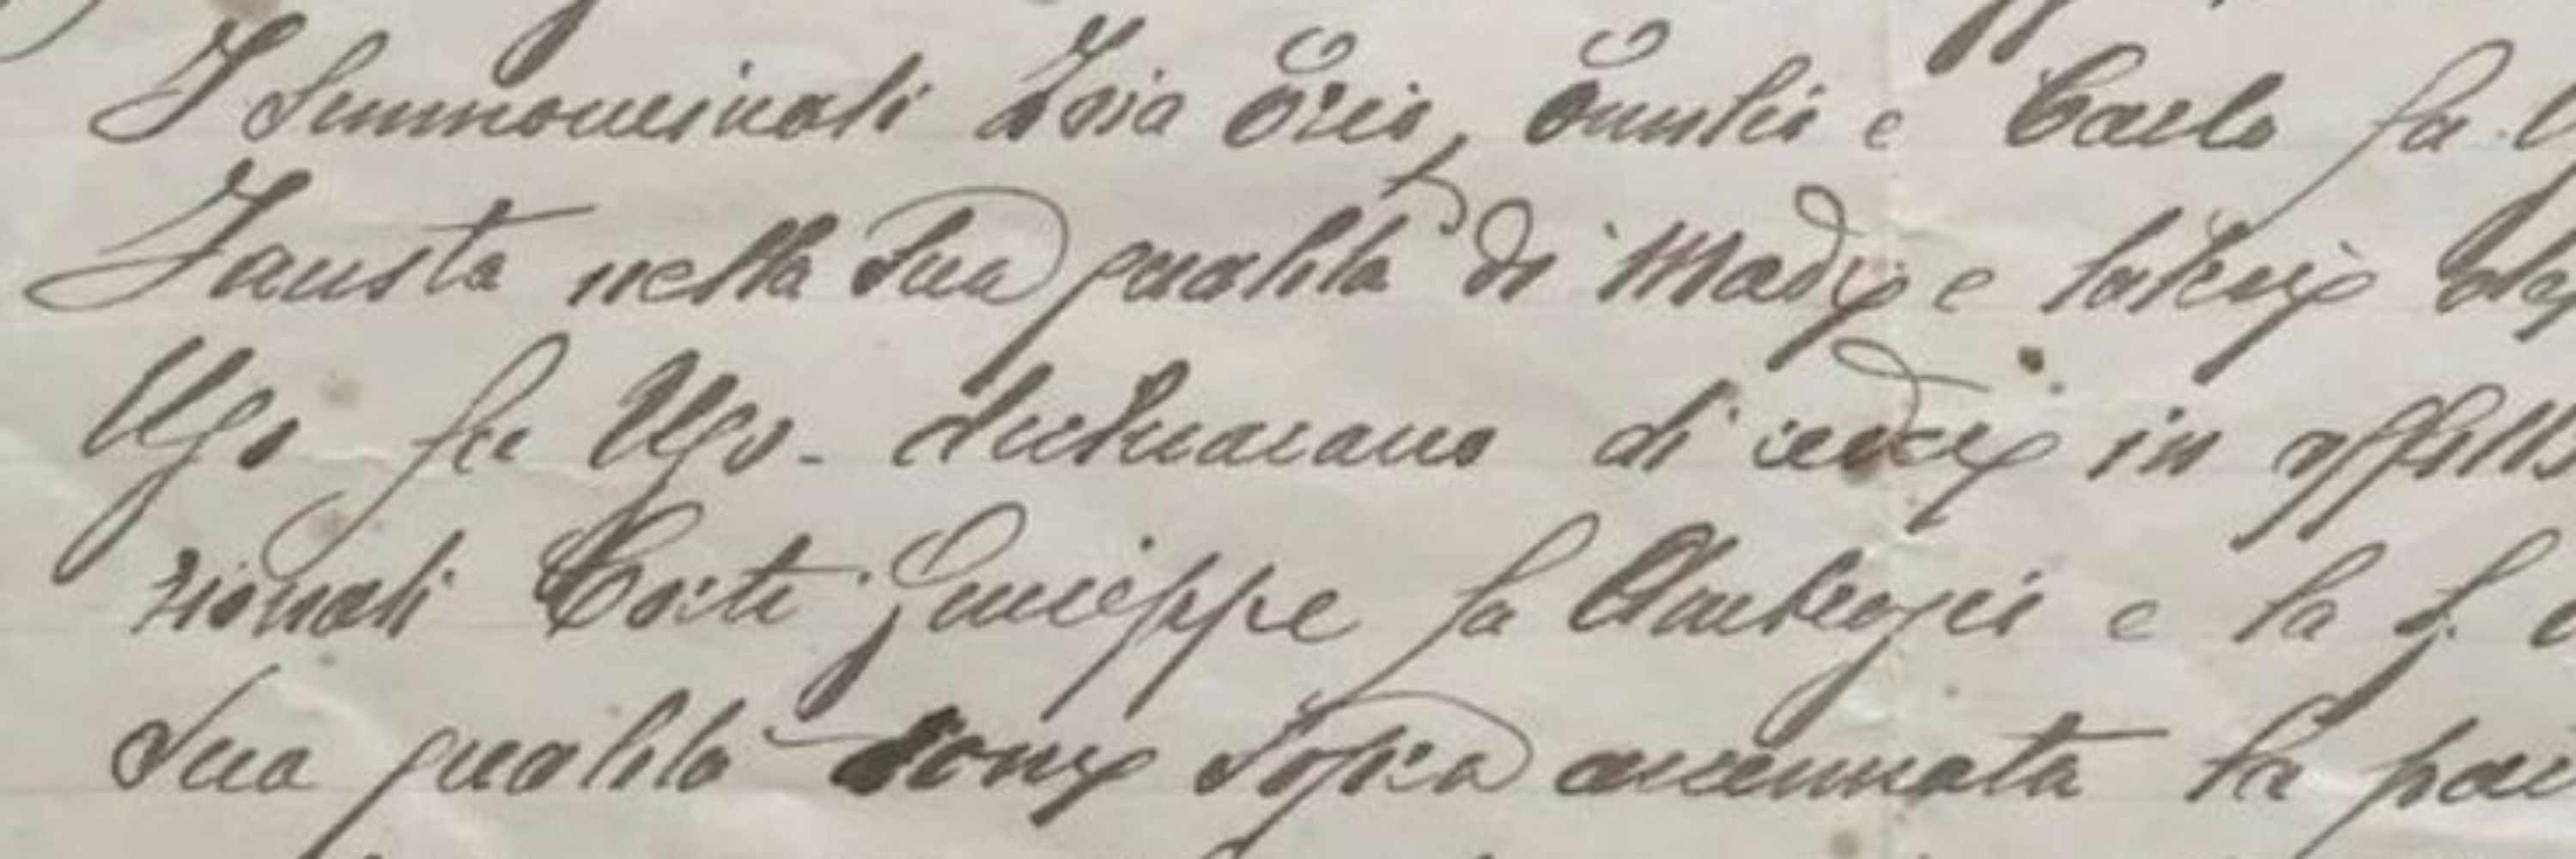 I summominati Isia Oreis, Emilio e Carlo fu
Fausta nella sua qualità di Madre e tutrice
Ugo fu Ugo - dichiarano di cedere in affitto
zionali Corti Giuseppe fu Ambrogio e la S.
sua qualità come sopra accennata la